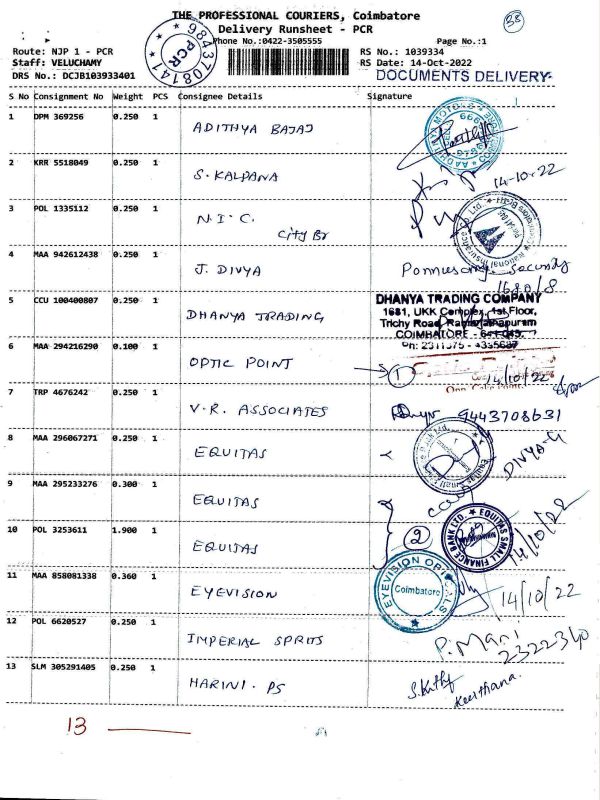 THE PROFESSIONAL COURIERS, Coimbatore
38
Delivery Runsheet - PCR
Phone No.:0422-3505555
Page No.:1
Route: NJP 1 - PCR
RS No.: 1039334
Staff: VELUCHAMY
RS Date: 14-Oct-2022
DRS No.: DCJB103933401
DOCUMENTS DELIVERY
PCR
9843708141
S No Consignment No Weight PCS Consignee Details Signature
1 DPM 369256 0.250 1 ADITHYA BAJAJ
2 KRR 5518049 0.250 1 S. KALPANA
14-10-22
3 POL 1335112 0.250 1 N.I.C.
City Br
4 MAA 942612438 0.250 1 J. DIVYA
Ponnusamy Security
1680/8
5 CCU 100400807 0.250 1 DHANYA TRADING
DHANYA TRADING COMPANY
1681, UKK Complex, 1st Floor,
Trichy Road, Ramanathapuram
COIMBATORE - 641 045.
6 MAA 294216290 0.100 1 OPTIC POINT
1
14/10/22
7 TRP 4676242 0.250 1 V.R. ASSOCIATES
9443708631
8 MAA 296067271 0.250 1 EQUITAS
DIVYA-G
9 MAA 295233276 0.300 1 EQUITAS
10 POL 3253611 1.900 1 EQUITAS
2
EQUITAS SMALL FINANCE BANK LTD.
14/10/22
11 MAA 858081338 0.360 1 EYEVISION
EYEVISION OPTICALS
Coimbatore
14/10/22
12 POL 6620527 0.250 1 IMPERIAL SPRITS
P. Mani
2322340
13 SLM 305291405 0.250 1 HARINI. PS
Keerthana.
13